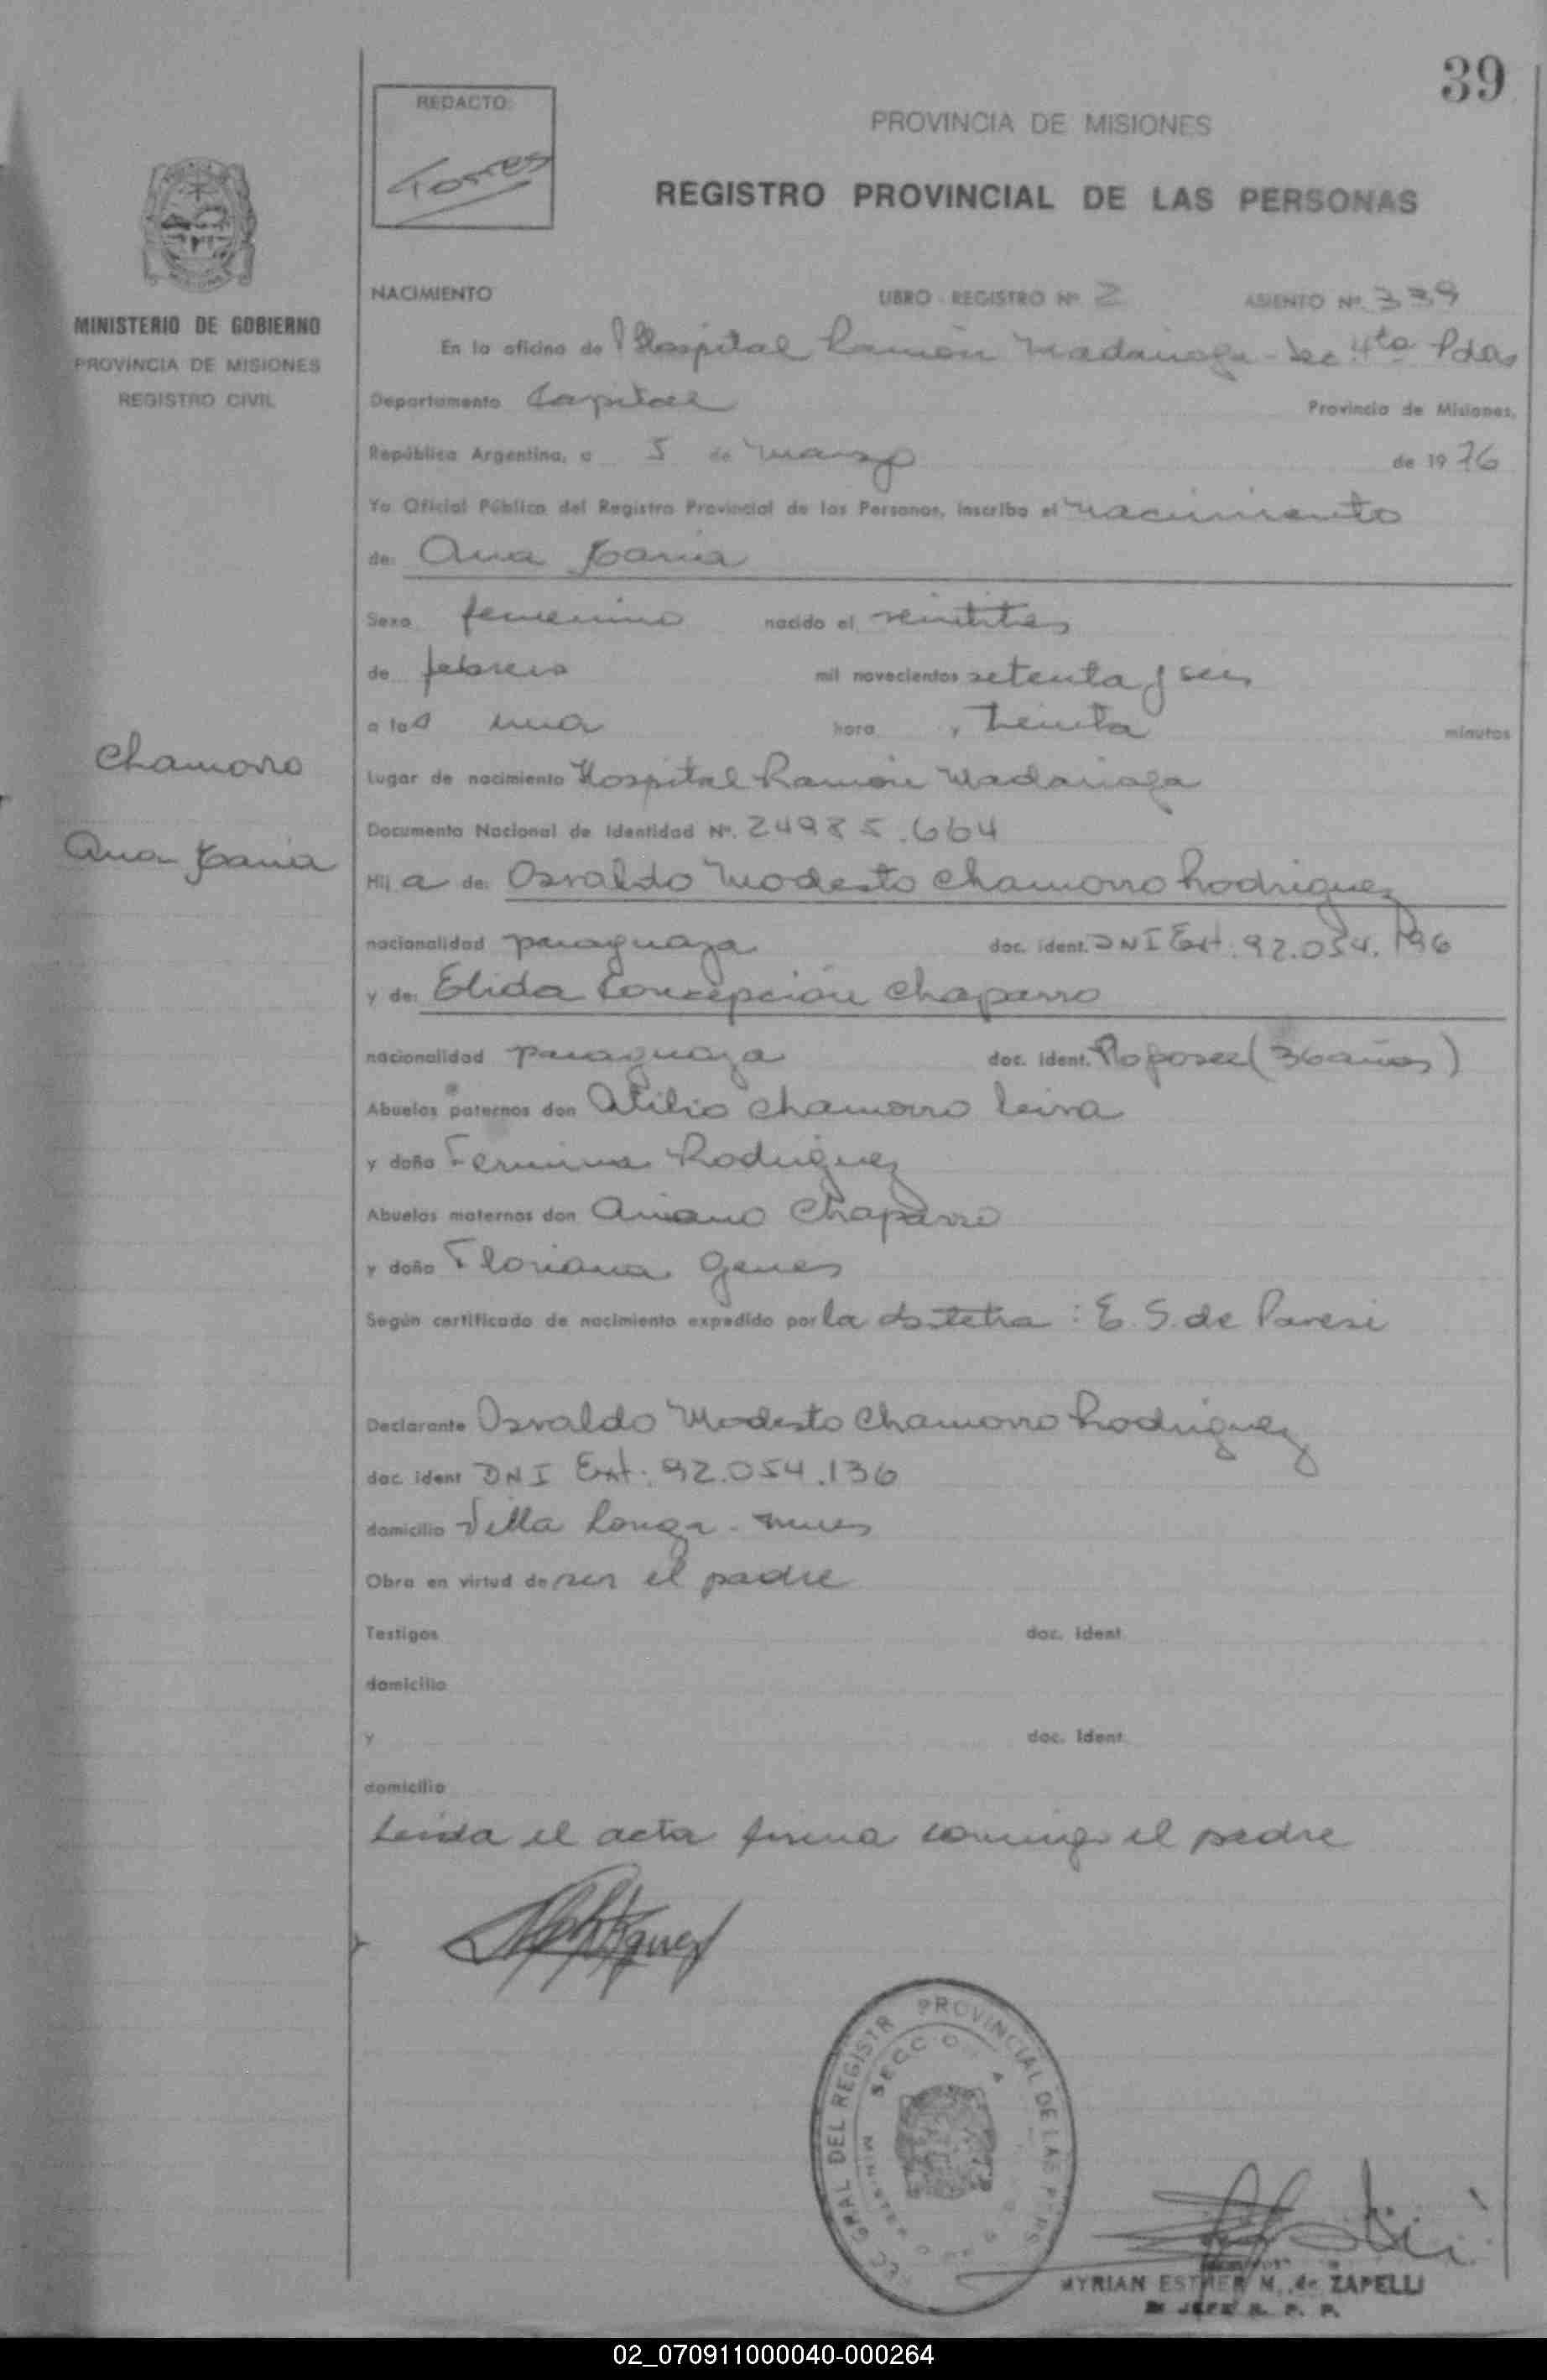 39
REDACTO:
Torres
PROVINCIA DE MISIONES
REGISTRO PROVINCIAL DE LAS PERSONAS
MINISTERIO DE GOBIERNO
PROVINCIA DE MISIONES
REGISTRO CIVIL
NACIMIENTO LIBRO - REGISTRO Nº 2 ASIENTO Nº 339
En la oficina de Hospital Ramón Madariaga - Sec. 4ta Pdas
Departamento Capital Provincia de Misiones,
República Argentina, a 5 de marzo de 1976
Yo Oficial Público del Registro Provincial de las Personas, inscribo el nacimiento
de: Ana
Sexo femenino nacido el veintitres
de febrero mil novecientos setenta y seis
a las una hora y treinta minutos
Chamorro
Lugar de nacimiento Hospital Ramón Madariaga
Documento Nacional de Identidad Nº. 24985.664
Ana
Hij a de: Osvaldo Modesto Chamorro Rodriguez
nacionalidad paraguaya doc. ident. DNI Ext. 92.054.196
y de: Elida Concepción Chaparro
nacionalidad paraguaya doc. ident. No posee (36 años)
Abuelos paternos don Atilio Chamorro Leiva
y doña Fermina Rodriguez
Abuelos maternos don Chaparro
y doña Floriana Genes
Según certificado de nacimiento expedido por la obstetra: E. S. de Paresi
Declarante Osvaldo Modesto Chamorro Rodriguez
doc. ident DNI Ext. 92.054.136
domicilio Villa Longa -
Obra en virtud de ser el padre
Testigos doc. ident.
domicilio
y doc. ident.
domicilio
Leida el acta firma conmigo el padre
GRAL DEL REGISTR PROVINCIAL DE LAS PERS
SECCIO
MYRIAN ESTHER M. de ZAPELLI
JEFE R. P. P.
02_070911000040-000264